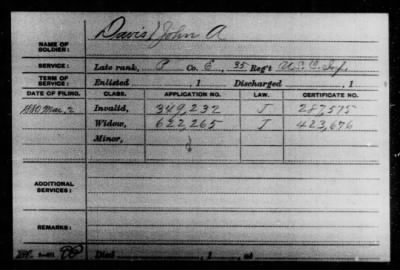 NAME OF SOLDIER: Davis, John A
SERVICE: Late rank, P Co. E, 35 Reg't U.S.C. Inf.
TERM OF SERVICE: Enlisted , 1 Discharged , 1
DATE OF FILING. CLASS. APPLICATION NO. LAW. CERTIFICATE NO.
1880 Mar. 2 Invalid, 349,232 J 287,575
Widow, 622,265 J 423,676
Minor,
ADDITIONAL SERVICES:
REMARKS:
Died , 1 , at